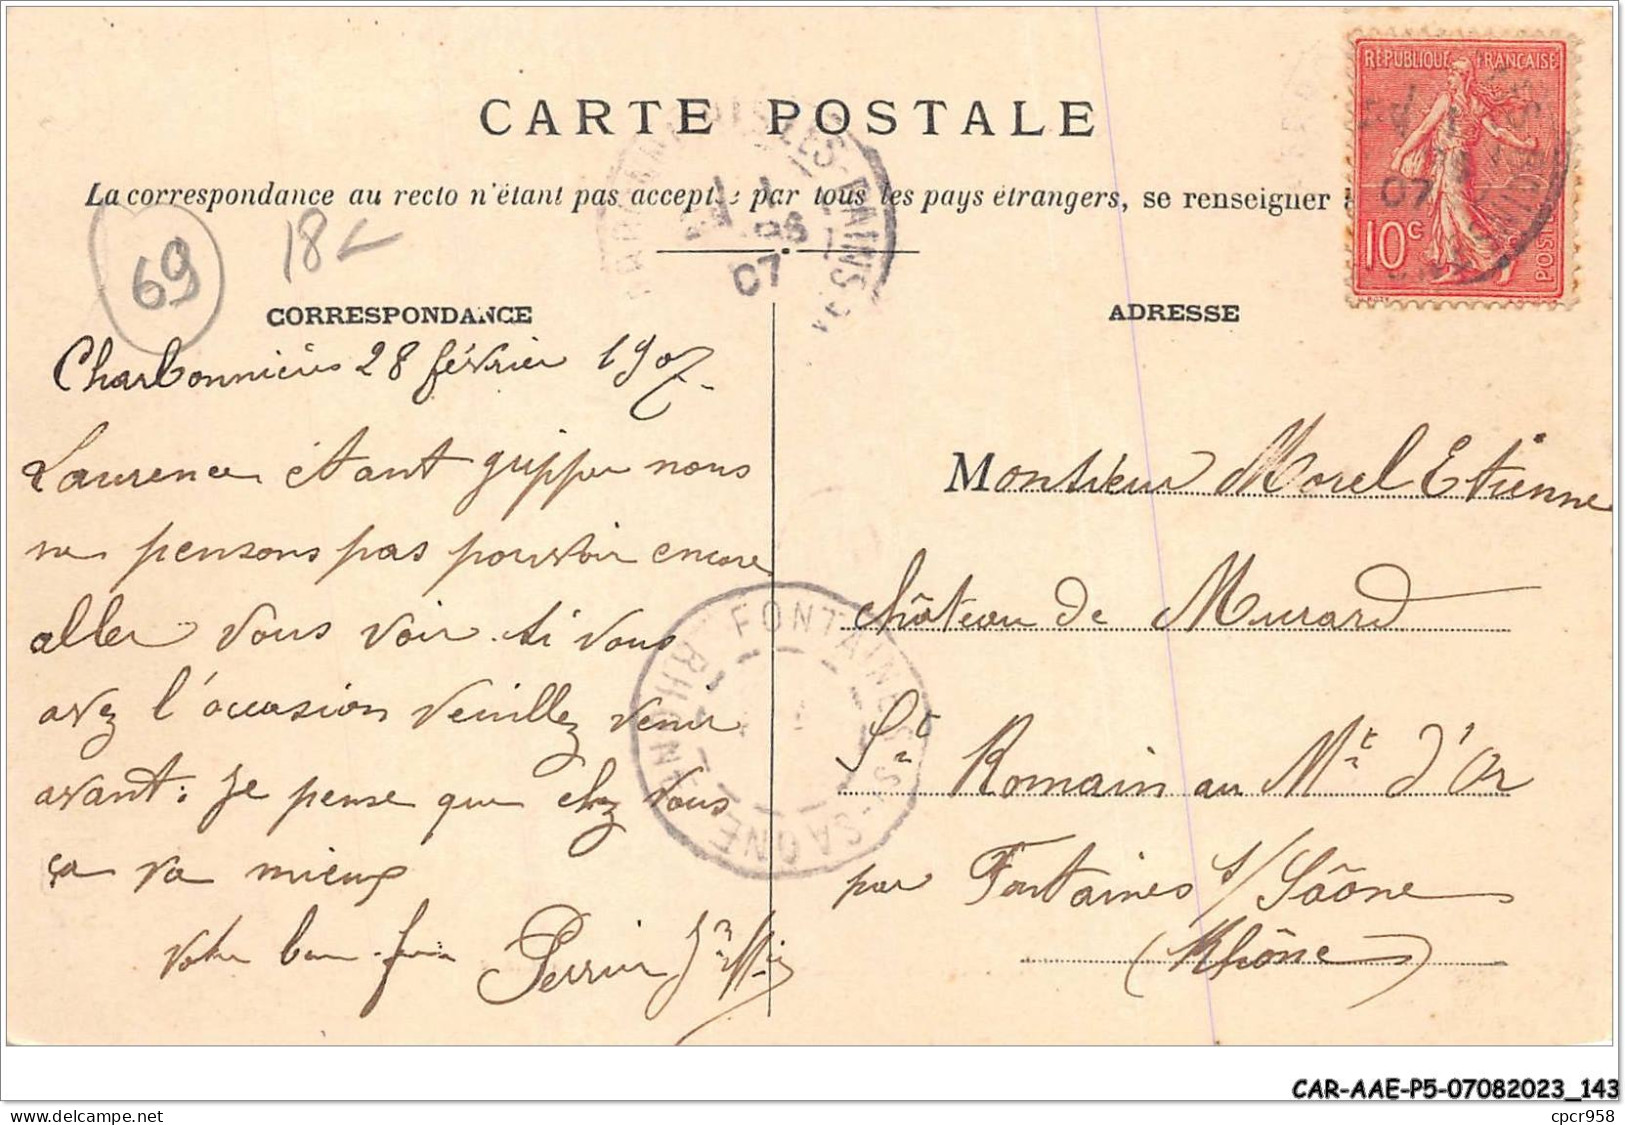 CARTE POSTALE
La correspondance au recto n'étant pas acceptée par tous les pays étrangers, se renseigner
RÉPUBLIQUE FRANÇAISE
10c
POSTES
07
07
69
18
CORRESPONDANCE
ADRESSE
Charbonnières 28 février 1907
Laurence étant grippée nous
ne pensons pas pouvoir encore
aller vous voir. si vous
avez l'occasion veuillez venir
avant. je pense que chez vous
ça va mieux
votre Perrin
FONTAINES-Sr-SAONE
RHONE
Monsieur Morel Etienne
château de Murard
St Romain au Mt d'Or
par Fontaines s/Saône
(Rhône)
CAR-AAE-P5-07082023_143
www.delcampe.net
cpcr958